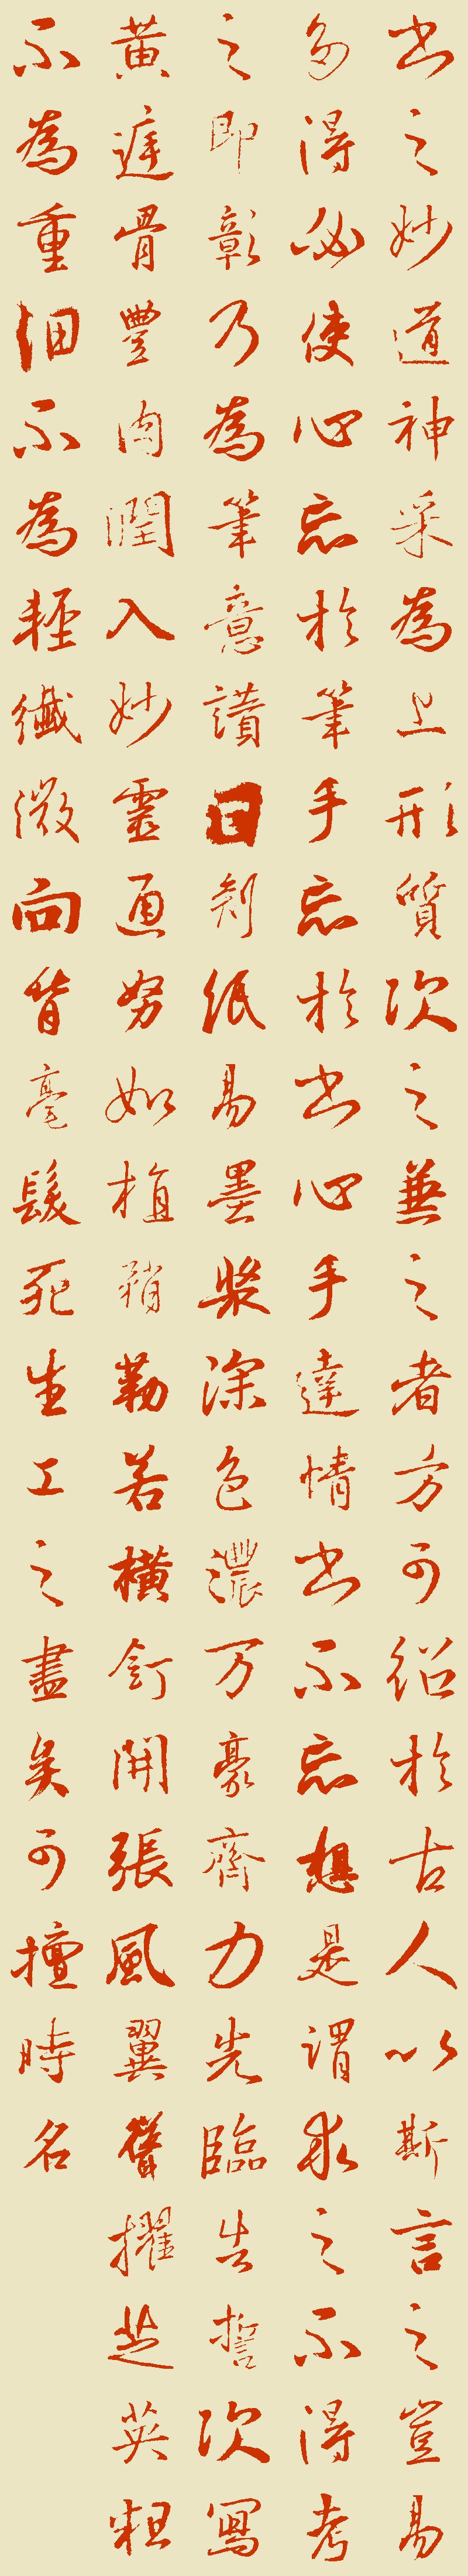 書之妙道神采為上形質次之兼之者方可紹於古人以斯言之豈易
多得必使心忘於筆手忘於書心手達情書不忘想是謂求之不得考
之即彰乃為筆意讚曰剡紙易墨漿深色濃万豪齊力先臨告誓次寫
黃庭骨豐肉潤入妙靈通努如植矟勒若橫釘開張風翼聳擢芝英粗
不為重細不為輕纖微向背毫髮死生工之盡矣可擅時名